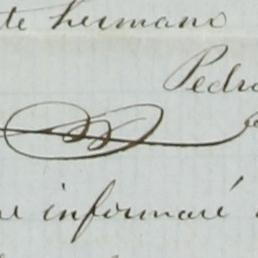 te hermano
Pedro
informaré